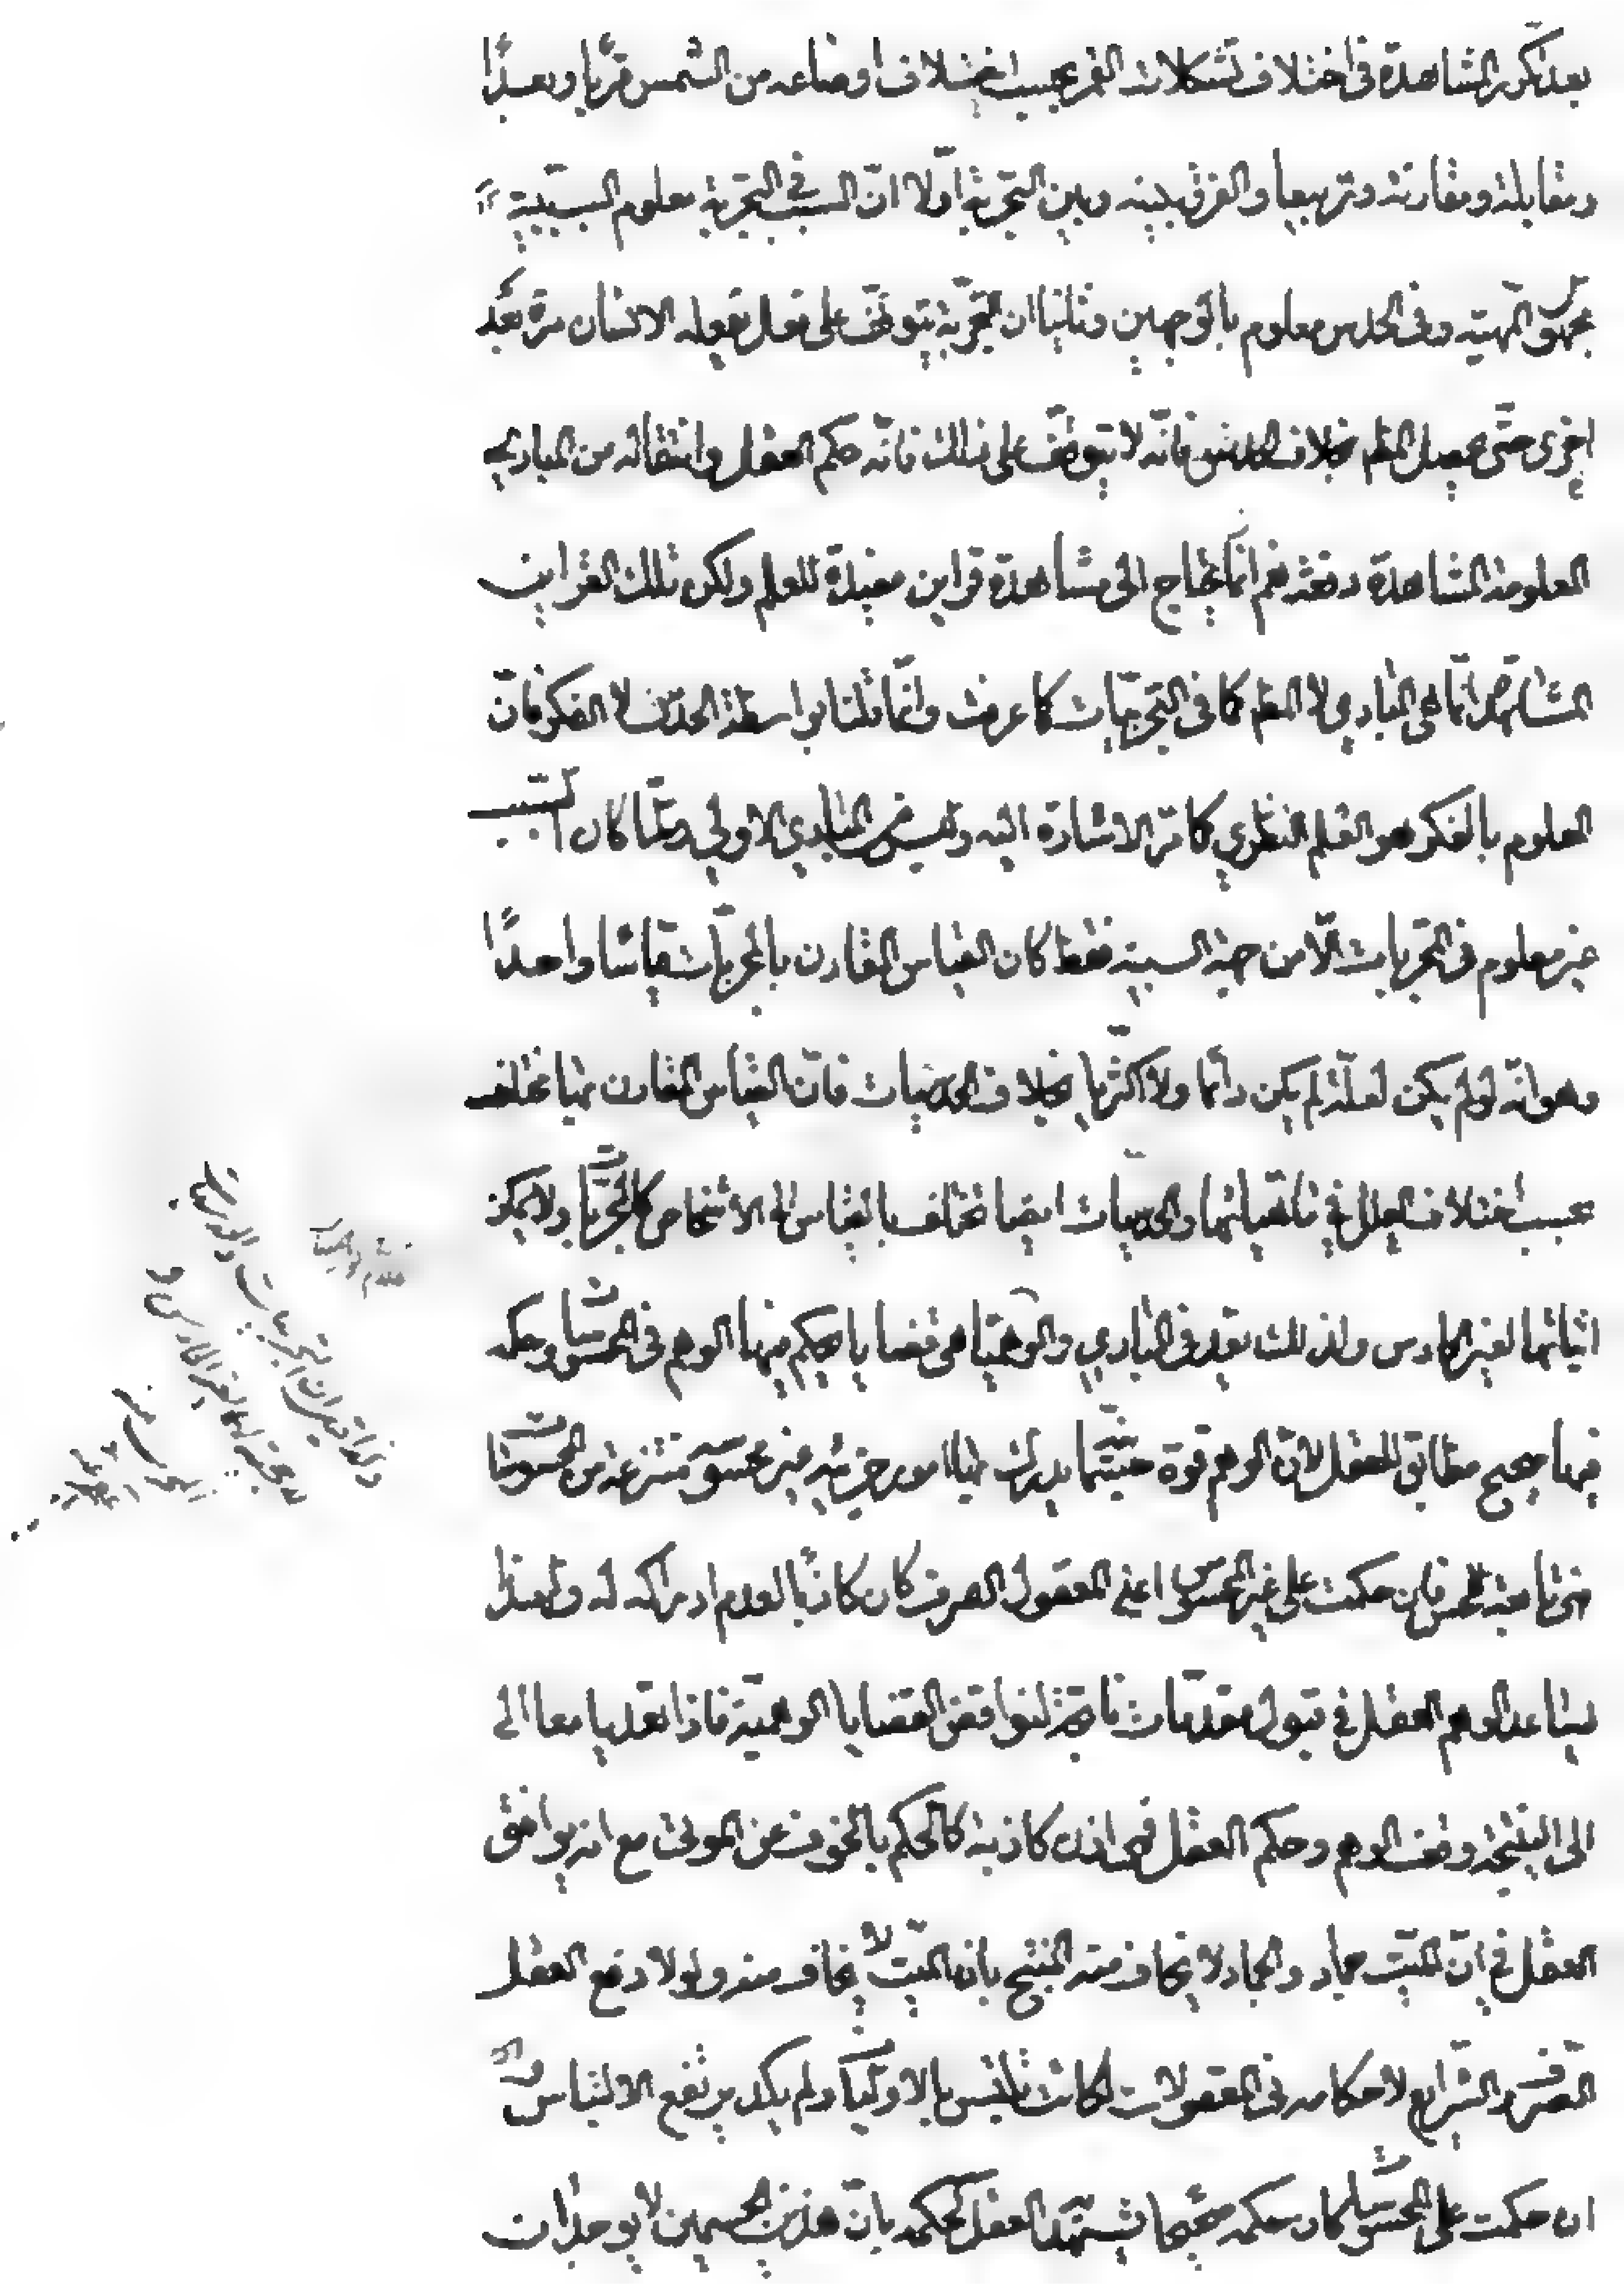 بعد تكرر المشاهدة فى اختلاف تشكلات القمر بحسب اختلاف اوضاعه من الشمس قربا وبعدًا
ومقابلة ومقارنة وتربيعا والفرق بينه وبين التجربة اوّلا انّ السبب فى التجربة معلوم السببيّة
مجهول المهيّة وفى الحدس معلوم بالوجهين وثانيا ان التجربة يتوقّف على فعل يفعله الانسان مرّة بعد
اخرى حتّى يحصل العلم بخلاف الحدس فانّه لا يتوقّف على ذلك فانّه حكم العقل وانتقاله من المبادى
المعلومة المشاهدة دفعة نعم انما يحتاج الى مشاهدة قراين مفيدة للعلم ولكن تلك القراين
المشاهدة انّما هى المبادي لا العلم كما فى التجربيّات كما عرفت وانّما قلنا بواسطة الحدس لا الفكر فانّ
المعلوم بالفكر هو العلم النظري كما مرّ الاشارة اليه وليس من المبادي الاولي ولمّا كان السبب
غير معلوم فى التجربيات الّا من جهة السببية فقط كان القياس المقارن بالمجربات قياسا واحدًا
وهو انّه لو لم يكن لعلّة لم يكن دائما ولا اكثريا بخلاف الحدسيات فانّ القياس المقارن بها يختلف
بحسب اختلاف العلل فى ماهياتها والحدسيات ايضا تختلف بالقياس الى الاشخاص كالمجربات ولا يمكن
اثباتها لغير الحادس ولذلك يعد فى المبادي والوهميات هى قضايا يحكم بها الوهم فى المحسوسات وحكمه
فيها صحيح مطابق للعقل لانّ الوهم قوة جسمانية يدرك بها امور جزئيه غير محسوسة منتزعة من المحسوسات
فهى تابعة للحس فان حكمت على غير المحسوس اعنى المعقول الصرف كان كاذبا لعدم ادراكه له ولهذا
يساعد الوهم العقل فى قبول مقدّمات ناتجة لنواقض القضايا الوهميّة فاذا تعديا معا الى
الى النتيجة وقف الوهم وحكم العقل فهى اذن كاذبة كالحكم بالخوف عن الموتى مع انه يوافق
العقل فى انّ الميّت جماد والجماد لا يخاف منه المنتج بان الميّت لا يخاف منه ولولا دفع العقل
الصرف والشرايع لاحكامه فى المعقولات لكانت تلتبس بالاوليات ولم يكد يرتفع الالتباس
ان حكمت على المحسوسات كان حكمه صحيحا يشهد العقل كحكمه بانّ هذين الجسمين لا يوجدان